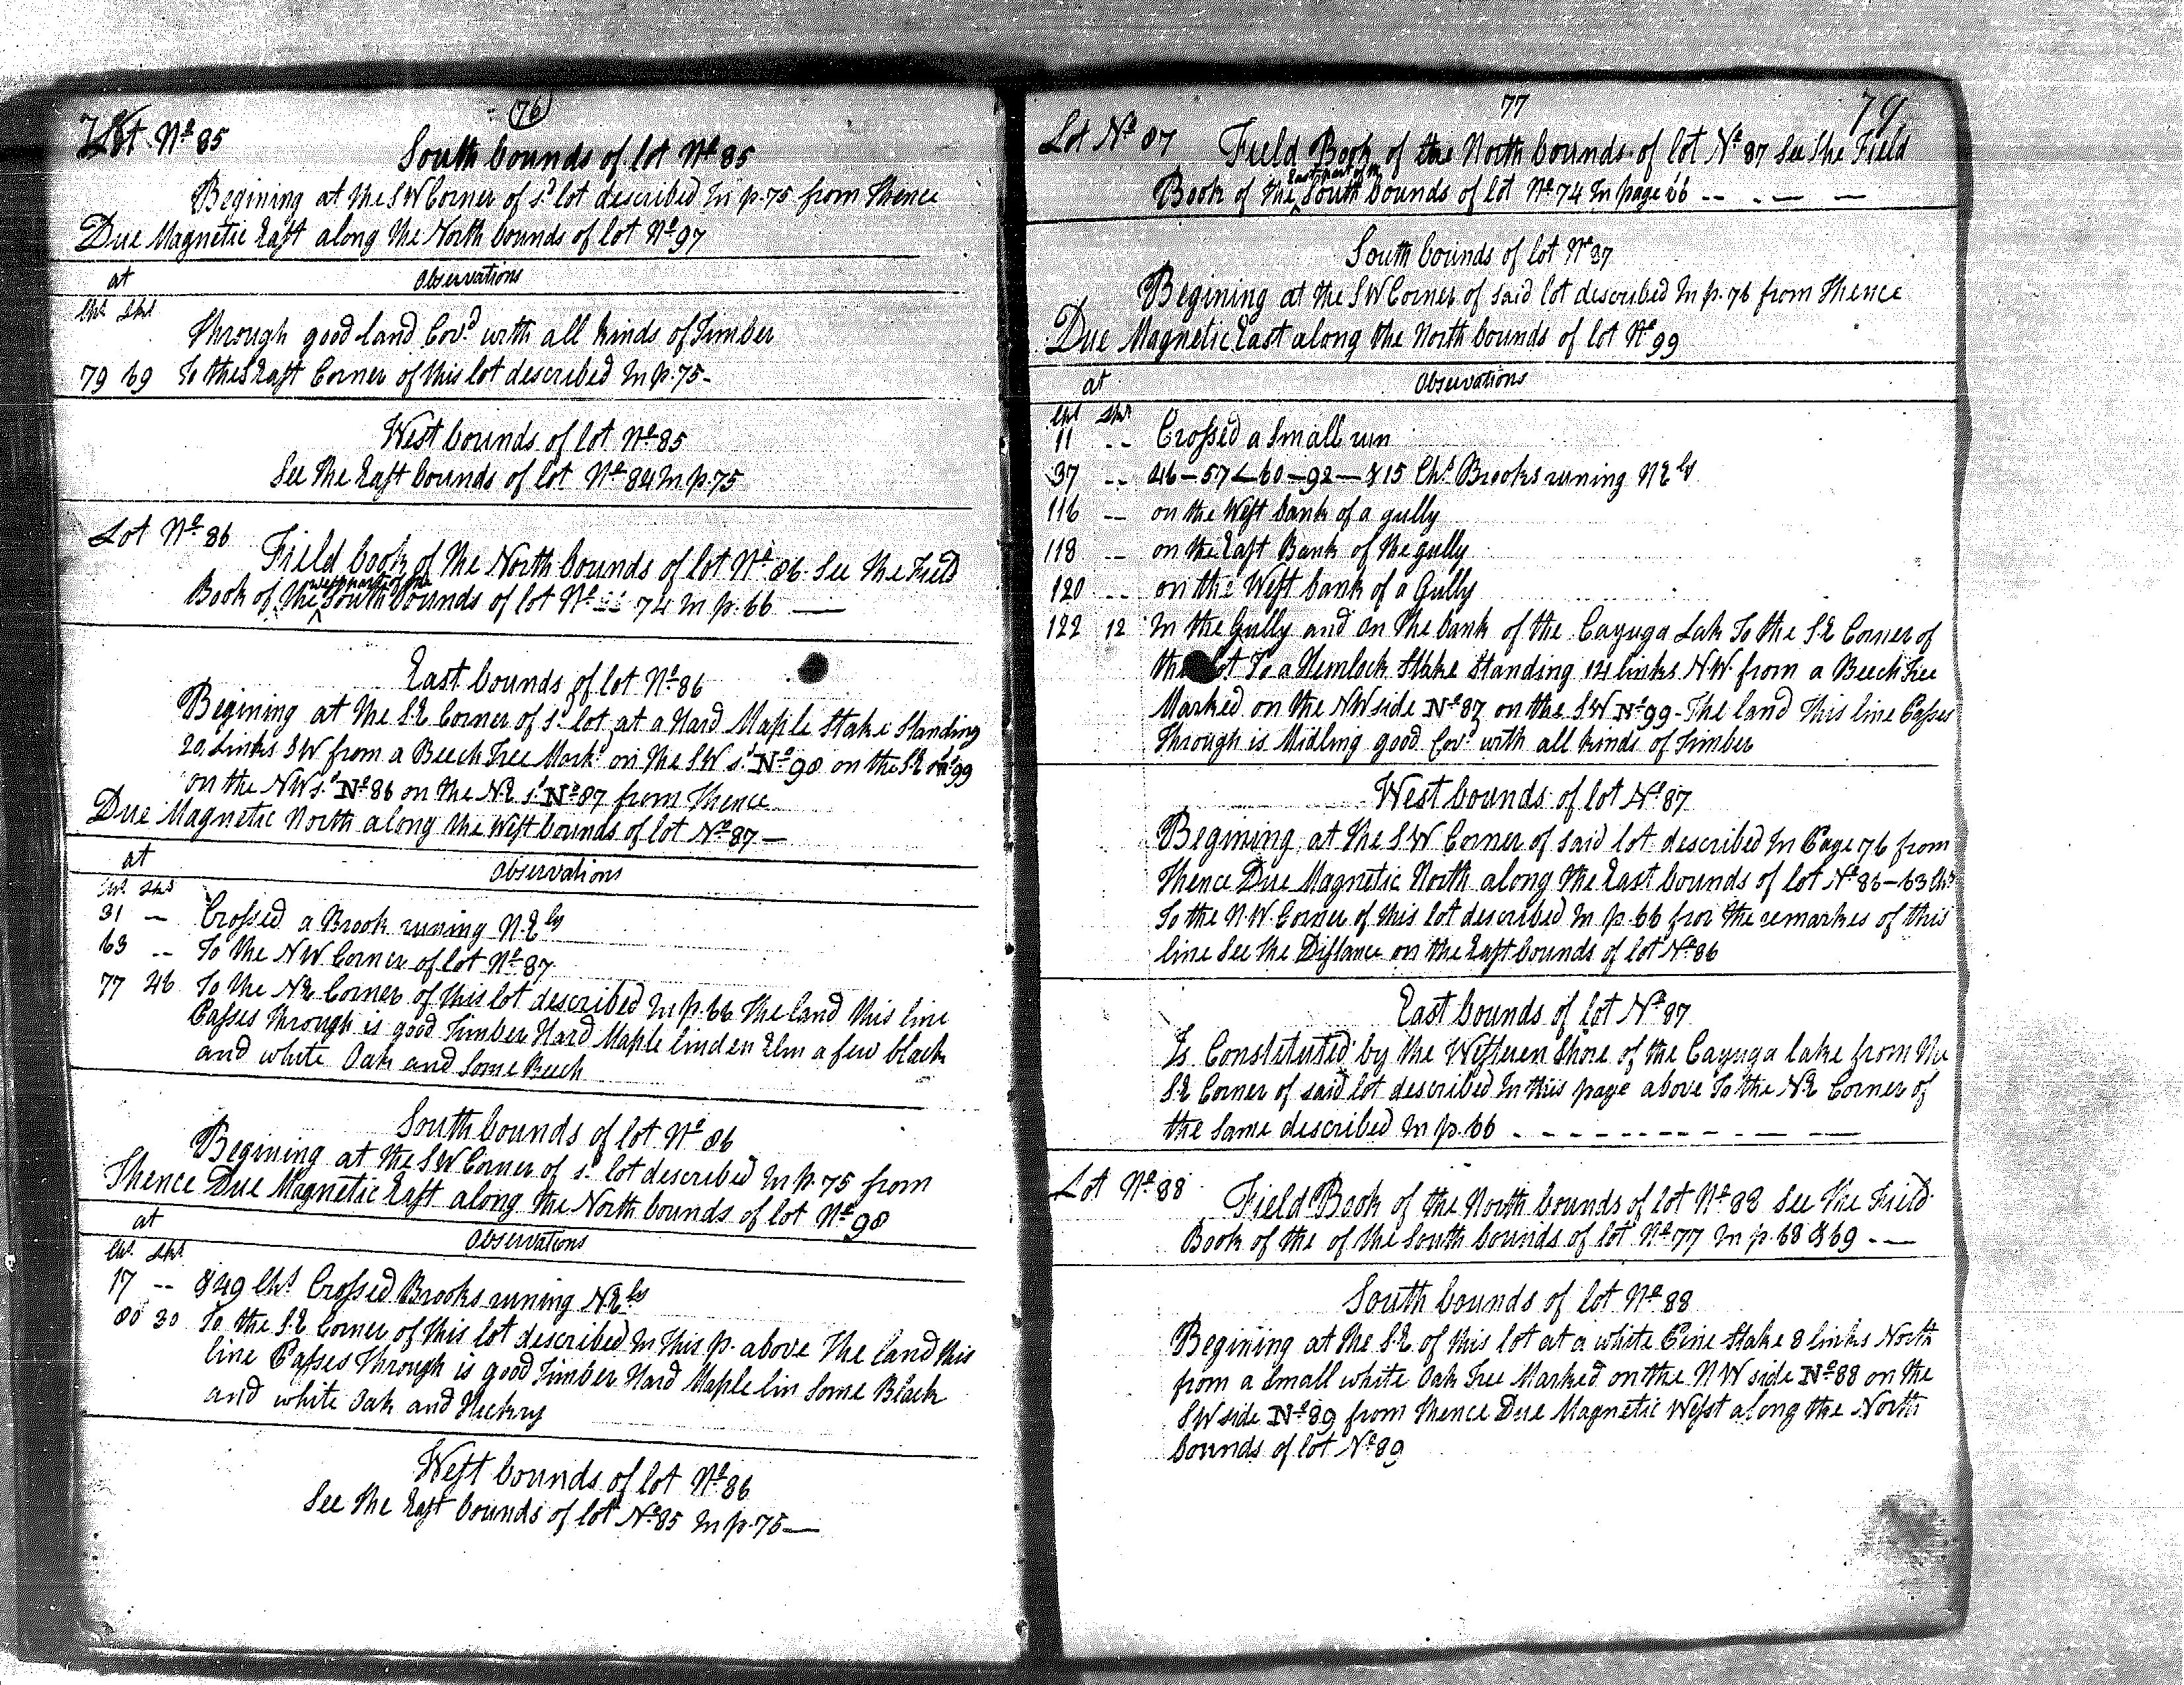 (76)
Lot Nº 85
South bounds of lot Nº 85
Begining at the SW Corner of sd lot described In p. 75 from Thence
Due Magnetic East along the North bounds of lot Nº 97
at Observations
Chs Lks
Through good land Covd with all kinds of Timber
79 69 To the S East Corner of this lot described In p. 75 -
West bounds of lot Nº 85
See the East bounds of lot Nº 84 In p. 75
Lot Nº 86
Field book of the North bounds of lot Nº 86. See the Field
west part of the
Book of the ^ South bounds of lot Nº 74 In p. 66 —
East bounds of lot Nº 86
Begining at the S.E Corner of sd lot at a Hard Maple Stake Standing
20 Links SW from a Beech Tree Markd on the SW sd Nº 98 on the S.E sd Nº 99
on the NW sd Nº 86 on the NE sd Nº 87 from Thence
Due Magnetic North along the West bounds of lot Nº 87 —
at Observations
Chs Lks
31 — Crossed a Brook runing N.Ely
63 -- To the NW Corner of lot Nº 87
77 46 To the NE Corner of this lot described In p. 66 The land this line
Passes Through is good Timber Hard Maple linden Elm a few black
and white Oak and Some Beech
South bounds of lot Nº 86
Begining at the SW Corner of sd lot described In p. 75 from
Thence Due Magnetic East along the North bounds of lot Nº 98
at Observations
Chs Lks
17 -- & 49 Chs Crossed Brooks runing NEly
80 30 To the S.E Corner of this lot described In this p. above The land this
line Passes Through is good Timber Hard Maple lin Some Black
and white Oak and Hickry
West bounds of lot Nº 86
See the East bounds of lot Nº 85 In p. 75 —
77
79
Lot Nº 87
Field Book of the North bounds of lot Nº 87 See the Field
East part of the
Book of the ^ South bounds of lot Nº 74 In page 66 -- - — —
South bounds of lot Nº 87
Begining at the SW Corner of said lot described In p. 76 from Thence
Due Magnetic East along the North bounds of lot Nº 99
at Observations
Chs Lks
11 -- Crossed a Small run
37 -- 46 — 57 — 60 — 92 — & 15 Chs Brooks runing NEly
116 -- on the West bank of a gully
118 -- on the East Bank of the gully
120 -- on the West bank of a Gully
122 12 In the Gully and on the bank of the Cayuga Lak To the S.E Corner of
lot To a Hemlock Stake Standing 14 links N.W. from a Beech Tree
Marked on the NW side Nº 87 on the SW Nº 99 - The land This line Passes
Through is Midling good Covd with all kinds of Timber
West bounds of lot Nº 87
Begining at the SW Corner of said lot described In Page 76 from
Thence Due Magnetic North along the East bounds of lot Nº 86 — 63 Chs
To the N.W. Corner of this lot described In p. 66 fror the remarkes of this
line See the Distance on the East bounds of lot Nº 86
East bounds of lot Nº 87
Is Constituted by the Western Shore of the Cayuga lake from the
S.E Corner of said lot described In this page above To the NE Corner of
the Same described In p. 66 - - - - - - - - — - — —
Lot Nº 88
Field Book of the North bounds of lot Nº 88 See the Field
Book of the of the South bounds of lot Nº 77 In p. 68 & 69 - —
South bounds of lot Nº 88
Begining at the S.E of this lot at a white Pine Stake 8 links North
from a Small white Oak Tree Marked on the NW side Nº 88 on the
SW side Nº 89 from Thence Due Magnetic West along the North
bounds of lot Nº 89